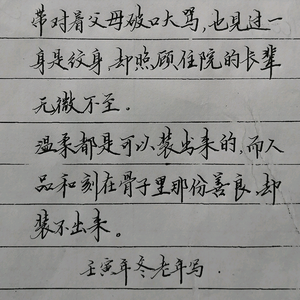 带对着父母破口大骂,也见过一
身是纹身,却照顾住院的长辈
无微不至。
温柔都是可以装出来的,而人
品和刻在骨子里那份善良,却
装不出来。
壬寅年冬老年写.